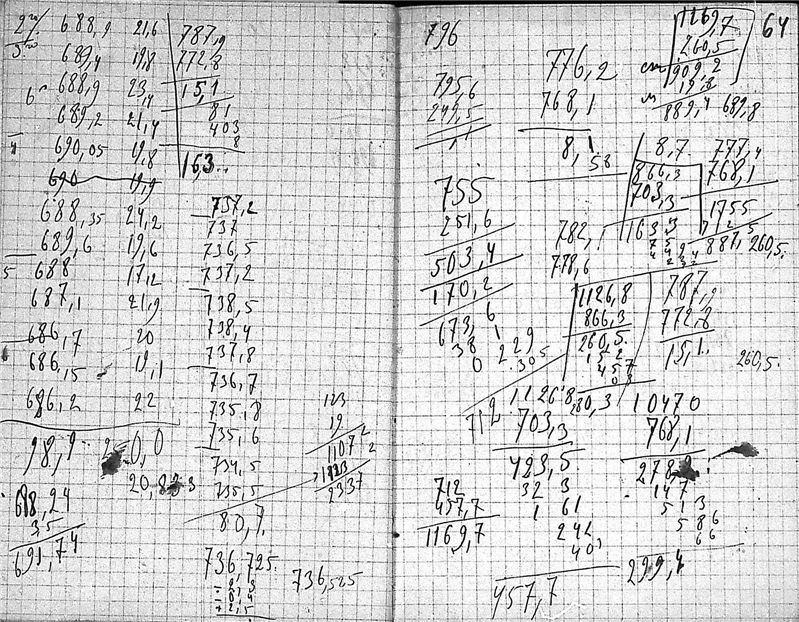 688,9 21,6
689,4 19,8
688,9 23,4
689,2 21,4
690,05 19,8
690 19,9
688,35 24,2
689,6 19,6
688 17,2
687,1 21,9
686,7 20
686,15 19,1
686,2 22
98,9
20,833
688,24
3,5
691,74
787,9
772,8
15,1
81
403
8
16,3
737,2
737
736,5
737,2
738,5
738,4
737,8
736,7
735,8
735,6
734,5
735,5
80,7
736,725
736,525
123
19
1107
2337
796
795,6
249,5
755
251,6
503,4
170,2
673,6
38 1
0 229
305
776,2
768,1
8,1
58
782,1
778,6
1169,7
260,5
909,2
19,8
889,4 689,8
64
8,7
866,3
703,3
1163,3
777,4
768,1
1755
712
887,5 260,5
1126,8
866,3
260,5
152
457
03
787,9
772,8
15,1
260,5
712
1126,8
703,3
423,5
32 3
1 61
242
40
457,7
260,3
10470
768,1
278
147
513
586
66
299,4
712
457,7
1169,7